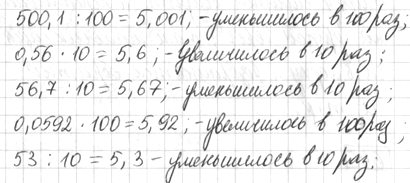 500,1 : 100 = 5,001; - уменьшилось в 100 раз;
0,56 · 10 = 5,6; - Увеличилось в 10 раз;
56,7 : 10 = 5,67; - уменьшилось в 10 раз;
0,0592 · 100 = 5,92; - увеличилось в 100 раз;
53 : 10 = 5,3 - уменьшилось в 10 раз.